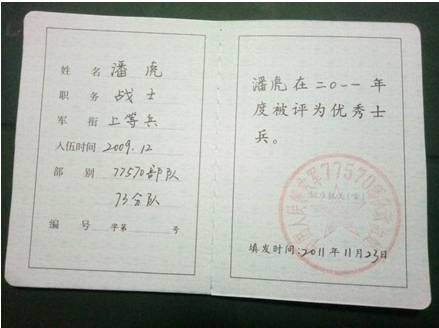 姓名 潘虎
职务 战士
军衔 上等兵
入伍时间 2009.12
部别 77570部队
73分队
编号 字第 号
潘虎在二〇一一年
度被评为优秀士
兵。
77570
填发时间:2011年11月23日